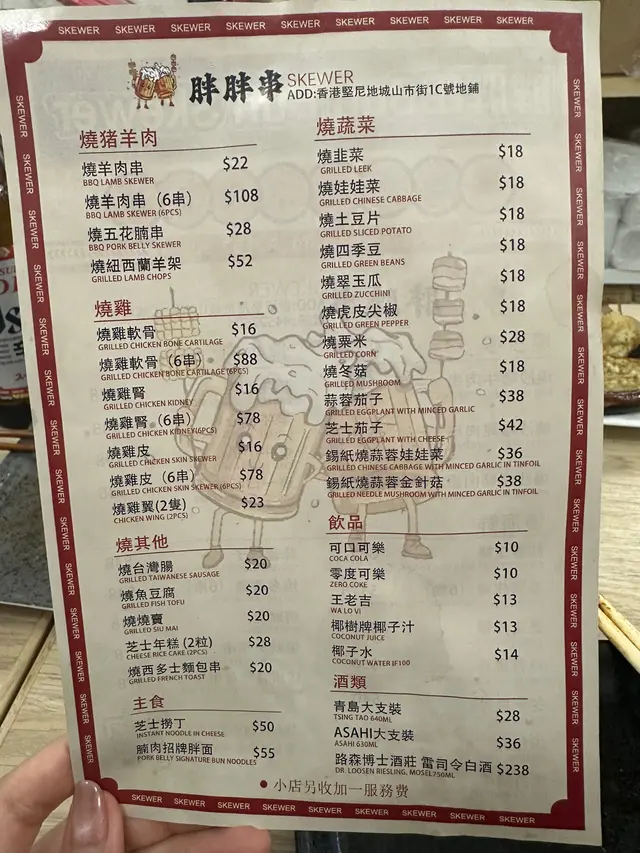 胖胖串 SKEWER
ADD:香港堅尼地城山市街1C號地鋪
燒猪羊肉
燒羊肉串 $22
BBQ LAMB SKEWER
燒羊肉串（6串） $108
BBQ LAMB SKEWER (6PCS)
燒五花腩串 $28
BBQ PORK BELLY SKEWER
燒紐西蘭羊架 $52
GRILLED LAMB CHOPS
燒雞
燒雞軟骨 $16
GRILLED CHICKEN BONE CARTILAGE
燒雞軟骨（6串） $88
GRILLED CHICKEN BONE CARTILAGE (6PCS)
燒雞腎 $16
GRILLED CHICKEN KIDNEY
燒雞腎（6串） $78
GRILLED CHICKEN KIDNEY(6PCS)
燒雞皮 $16
GRILLED CHICKEN SKIN SKEWER
燒雞皮（6串） $78
GRILLED CHICKEN SKIN SKEWER (6PCS)
燒雞翼(2隻) $23
CHICKEN WING (2PCS)
燒其他
燒台灣腸 $20
GRILLED TAIWANESE SAUSAGE
燒魚豆腐 $20
GRILLED FISH TOFU
燒燒賣 $20
GRILLED SIU MAI
芝士年糕 (2粒) $28
CHEESE RICE CAKE (2PCS)
燒西多士麵包串 $20
GRILLED FRENCH TOAST
主食
芝士撈丁 $50
INSTANT NOODLE IN CHEESE
腩肉招牌胖面 $55
PORK BELLY SIGNATURE BUN NOODLES
燒蔬菜
燒韭菜 $18
GRILLED LEEK
燒娃娃菜 $18
GRILLED CHINESE CABBAGE
燒土豆片 $18
GRILLED SLICED POTATO
燒四季豆 $18
GRILLED GREEN BEANS
燒翠玉瓜 $18
GRILLED ZUCCHINI
燒虎皮尖椒 $18
GRILLED GREEN PEPPER
燒粟米 $28
GRILLED CORN
燒冬菇 $18
GRILLED MUSHROOM
蒜蓉茄子 $38
GRILLED EGGPLANT WITH MINCED GARLIC
芝士茄子 $42
GRILLED EGGPLANT WITH CHEESE
錫紙燒蒜蓉娃娃菜 $36
GRILLED CHINESE CABBAGE WITH MINCED GARLIC IN TINFOIL
錫紙燒蒜蓉金針菇 $38
GRILLED NEEDLE MUSHROOM WITH MINCED GARLIC IN TINFOIL
飲品
可口可樂 $10
COCA COLA
零度可樂 $10
ZERO COKE
王老吉 $13
WA LO VI
椰樹牌椰子汁 $13
COCONUT JUICE
椰子水 $14
COCONUT WATER IF100
酒類
青島大支裝 $28
TSING TAO 640ML
ASAHI大支裝 $36
ASAHI 630ML
路森博士酒莊 雷司令白酒 $238
DR. LOOSEN RIESLING, MOSEL750ML
小店另收加一服務費
SKEWER SKEWER SKEWER SKEWER SKEWER SKEWER SKEWER SKEWER SKEWER